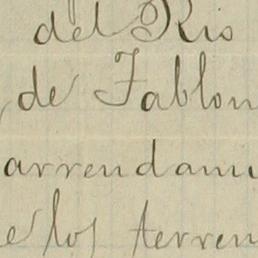 del Rio
, de Tablon
arrendami
e los terren